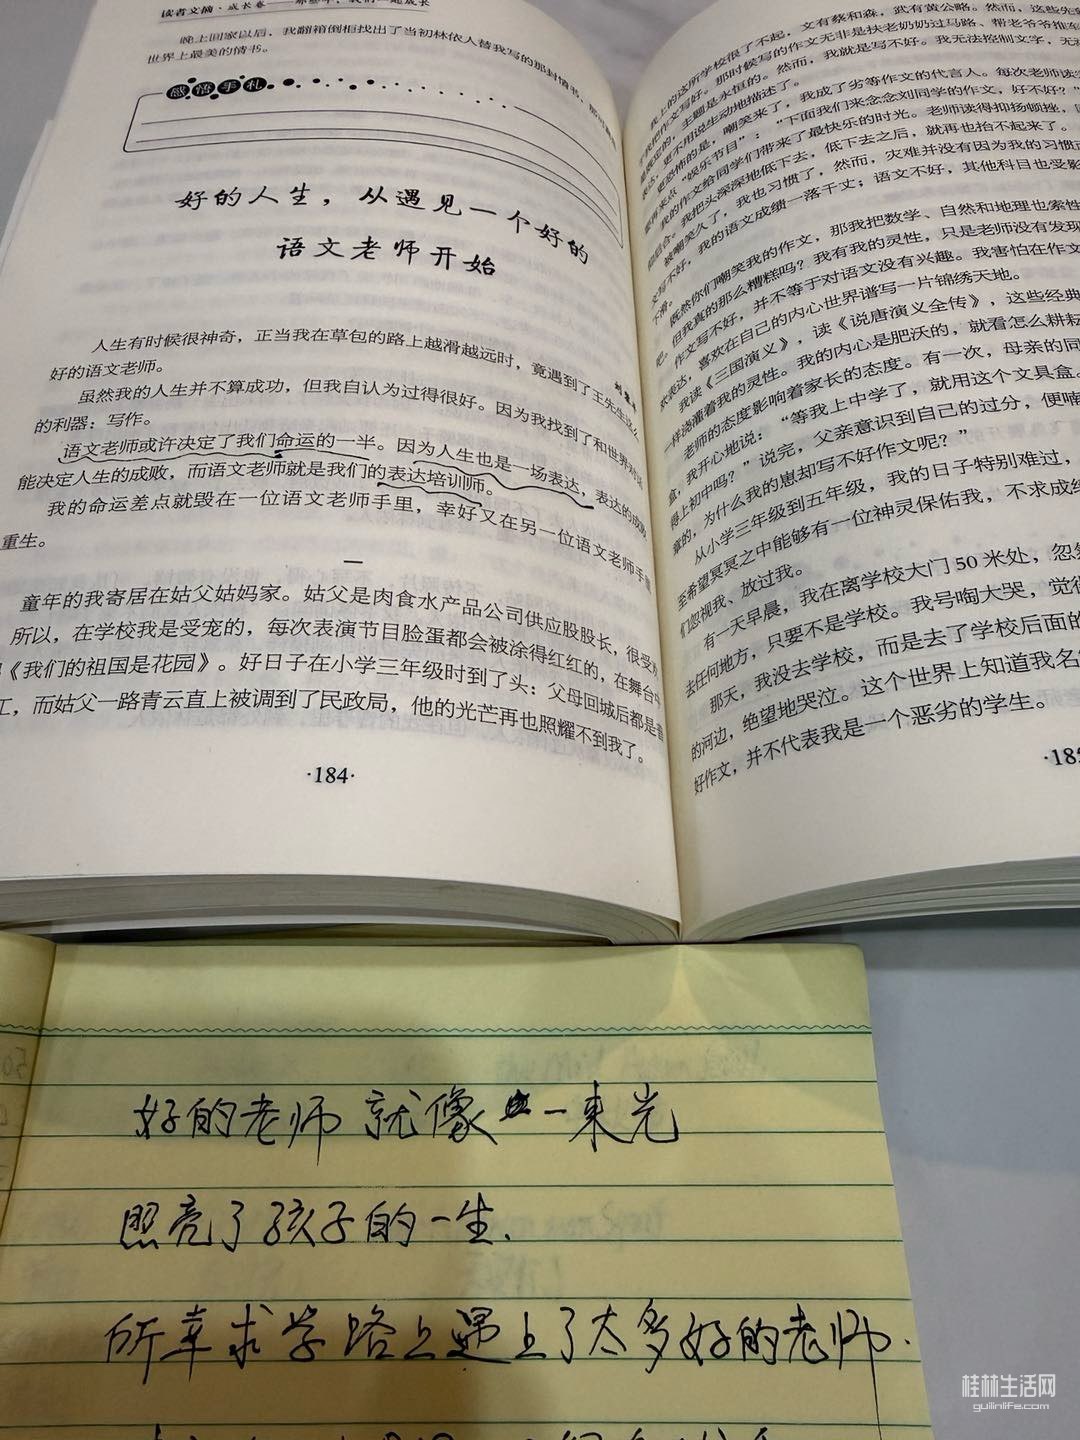 读者文摘·成长卷——那些年，我们一起成长
晚上回家以后，我翻箱倒柜找出了当初林依人替我写的那封情书，那
世界上最美的情书。
感悟手札
好的人生，从遇见一个好的
语文老师开始
人生有时候很神奇，正当我在草包的路上越滑越远时，竟遇到了王先生这么
好的语文老师。
虽然我的人生并不算成功，但我自认为过得很好。因为我找到了和世界对话
的利器：写作。
语文老师或许决定了我们命运的一半。因为人生也是一场表达，表达的成败
能决定人生的成败，而语文老师就是我们的表达培训师。
我的命运差点就毁在一位语文老师手里，幸好又在另一位语文老师手里
重生。
一
童年的我寄居在姑父姑妈家。姑父是肉食水产品公司供应股股长，很受
所以，在学校我是受宠的，每次表演节目脸蛋都会被涂得红红的，在舞台
《我们的祖国是花园》。好日子在小学三年级时到了头：父母回城后都是普
工，而姑父一路青云直上被调到了民政局，他的光芒再也照耀不到我了。
·184·
文有蔡和森，武有黄公略。然而，这些先
上的这所学校很了不起，
把作文写好。那时候写的作文无非是扶老奶奶过马路、帮老爷爷推车
定的，主题是永恒的。然而，我就是写不好。我无法控制文字，无
表达，更不用说生动地描述了。
更恐怖的是，嘲笑来了，我成了劣等作文的代言人。每次老师读
要再来点“娱乐节目”：“下面我们来念念刘同学的作文，好不好？”
我的作文给同学们带来了最快乐的时光。老师读得抑扬顿挫，
组合。我把头深深地低下去，低下去之后，就再也抬不起来了。
被嘲笑久了，我也习惯了，然而，灾难并没有因为我的习惯
文写不好，我的语文成绩一落千丈；语文不好，其他科目也受影
下滑。
既然你们嘲笑我的作文，那我把数学、自然和地理也索性
吧。但我真的那么糟糕吗？我有我的灵性，只是老师没有发现
作文写不好，并不等于对语文没有兴趣。我害怕在作文
表达，喜欢在自己的内心世界谱写一片锦绣天地。
我读《三国演义》，读《说唐演义全传》，这些经典
一样浇灌着我的灵性。我的内心是肥沃的，就看怎么耕耘
老师的态度影响着家长的态度。有一次，母亲的同
盒，我开心地说：“等我上中学了，就用这个文具盒。
得上初中吗？”说完，父亲意识到自己的过分，便喃
章的，为什么我的崽却写不好作文呢？”
从小学三年级到五年级，我的日子特别难过，
至希望冥冥之中能够有一位神灵保佑我，不求成绩
们忽视我、放过我。
有一天早晨，我在离学校大门50米处，忽然
去任何地方，只要不是学校。我号啕大哭，觉得
那天，我没去学校，而是去了学校后面的
的河边，绝望地哭泣。这个世界上知道我名
好作文，并不代表我是一个恶劣的学生。
·185
好的老师就像一束光
照亮了孩子的一生.
所幸求学路上遇上了太多好的老师.
桂林生活网
guilinlife.com